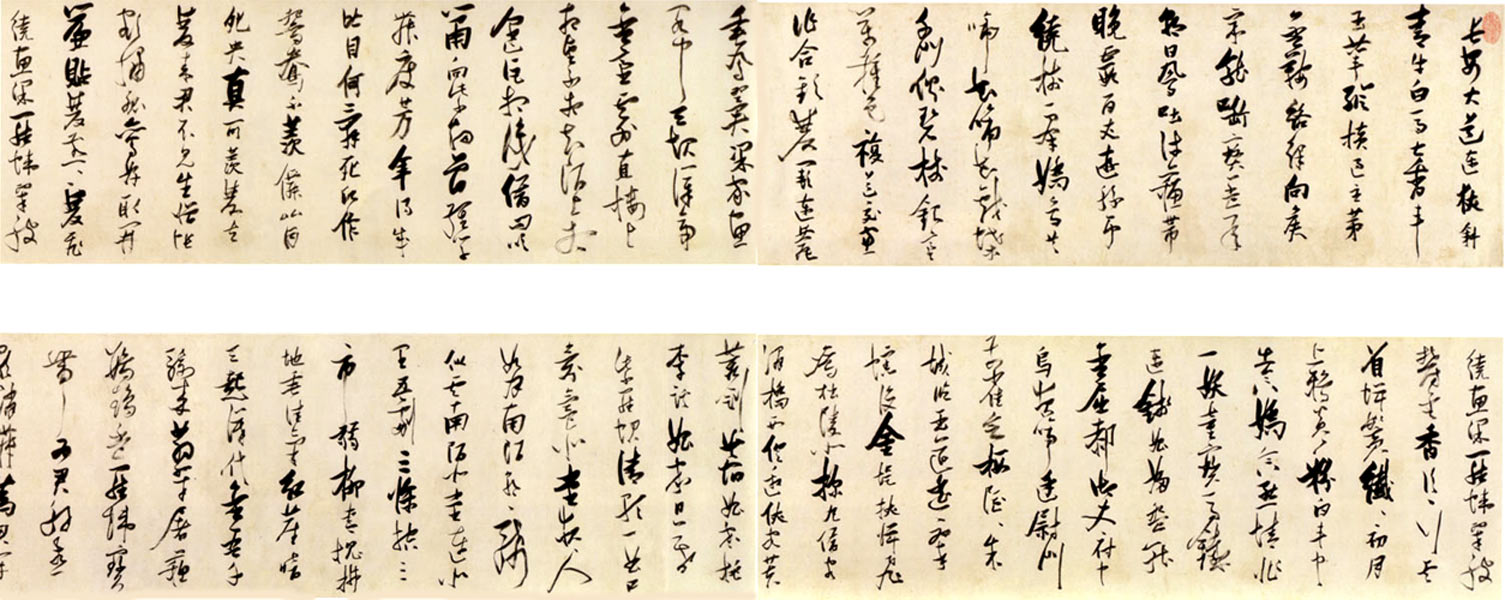 長安大道連狹斜
青牛白馬七香車
玉輦縱橫過主第
金鞭絡繹向侯
家龍銜寶蓋承
朝日鳳吐流蘇帶
晚霞百丈遊絲爭
繞樹一群嬌鳥共
啼花啼花戲蝶
千門側碧樹銀臺
萬種色複道交窗
作合歡雙闕連甍
垂鳳翼梁家畫
閣中天起漢帝
金莖雲外直樓前
相望不相知陌上相
逢詎相識借問吹
簫向紫煙曾經學
舞度芳年得成
比目何辭死願作
鴛鴦不羨仙比目
鴛鴦真可羨雙去
雙來君不見生憎帳
額繡孤鸞好取門
簾帖雙燕雙燕雙飛
繞畫梁羅幃翠被
繞畫梁羅幃翠被
鬱金香片片行雲
著蟬鬢纖纖初月
上鴉黃鴉黃粉白車中
出含嬌含態情非
一妖童寶馬鐵
連錢娼婦盤龍
金屈膝御史府中
烏夜啼廷尉門
前雀欲棲隱隱朱
城臨玉道遙遙翠
幰沒金堤挾彈飛
鷹杜陵北探丸借客
渭橋西俱邀俠客芙
蓉劍共宿娼家桃
李蹊娼家日暮
紫羅裙清歌一囀口
氛氳北堂夜夜人
如月南陌朝朝騎
似雲南陌北堂連北
里五劇三條控三
市弱柳青槐拂
地垂佳氣紅塵暗
天起漢代金吾千
騎來翡翠屠蘇
鸚鵡杯羅幃寶
帶為君解燕